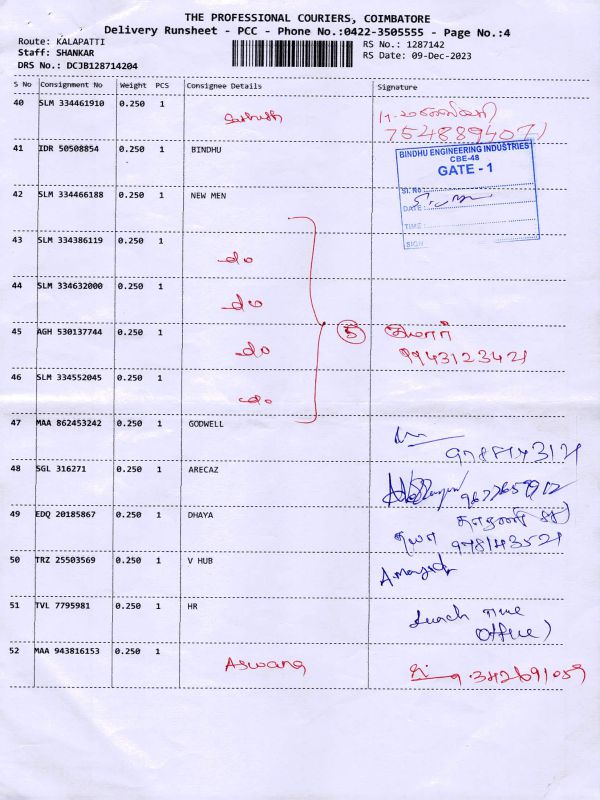 THE PROFESSIONAL COURIERS, COIMBATORE
Delivery Runsheet - PCC - Phone No.:0422-3505555 - Page No.:4
Route: KALAPATTI
Staff: SHANKAR
DRS No.: DCJB128714204
RS No.: 1287142
RS Date: 09-Dec-2023
S No Consignment No Weight PCS Consignee Details Signature
40 SLM 334461910 0.250 1
41 IDR 50508854 0.250 1 BINDHU
BINDHU ENGINEERING INDUSTRIES
CBE-48
GATE - 1
Sl. No :
DATE :
TIME :
SIGN
42 SLM 334466188 0.250 1 NEW MEN
43 SLM 334386119 0.250 1 do
44 SLM 334632000 0.250 1 do
45 AGH 530137744 0.250 1 do 5
9943123421
46 SLM 334552045 0.250 1 do
47 MAA 862453242 0.250 1 GODWELL
48 SGL 316271 0.250 1 ARECAZ
49 EDQ 20185867 0.250 1 DHAYA
50 TRZ 25503569 0.250 1 V HUB
51 TVL 7795981 0.250 1 HR
Office)
52 MAA 943816153 0.250 1 Aswang